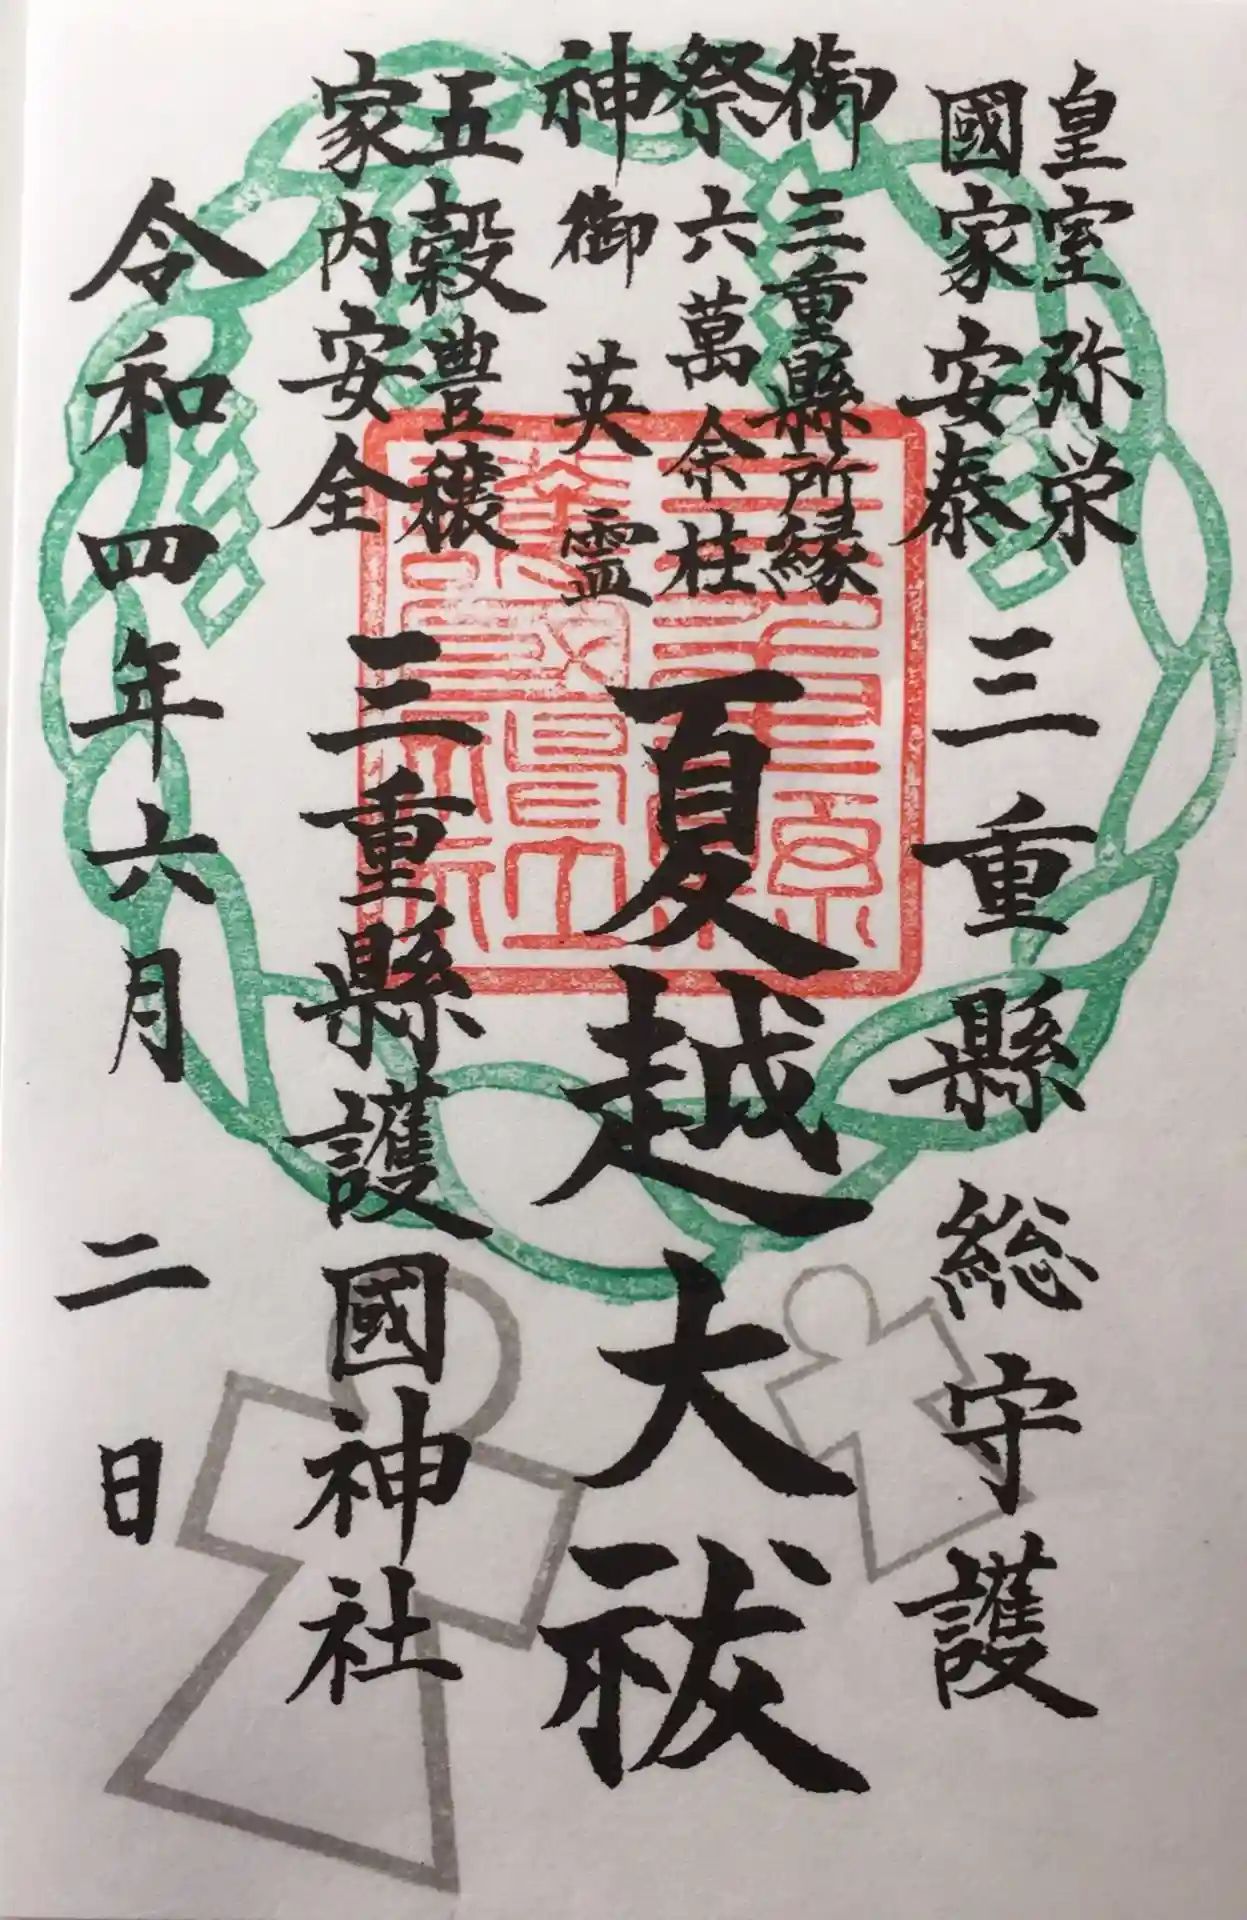 皇室弥栄
國家安泰
三重縣総守護
御祭神
三重縣所縁
六萬余柱
御英霊
夏越大祓
五穀豊穣
家内安全
三重縣護國神社
令和四年六月二日
三重縣護國神社